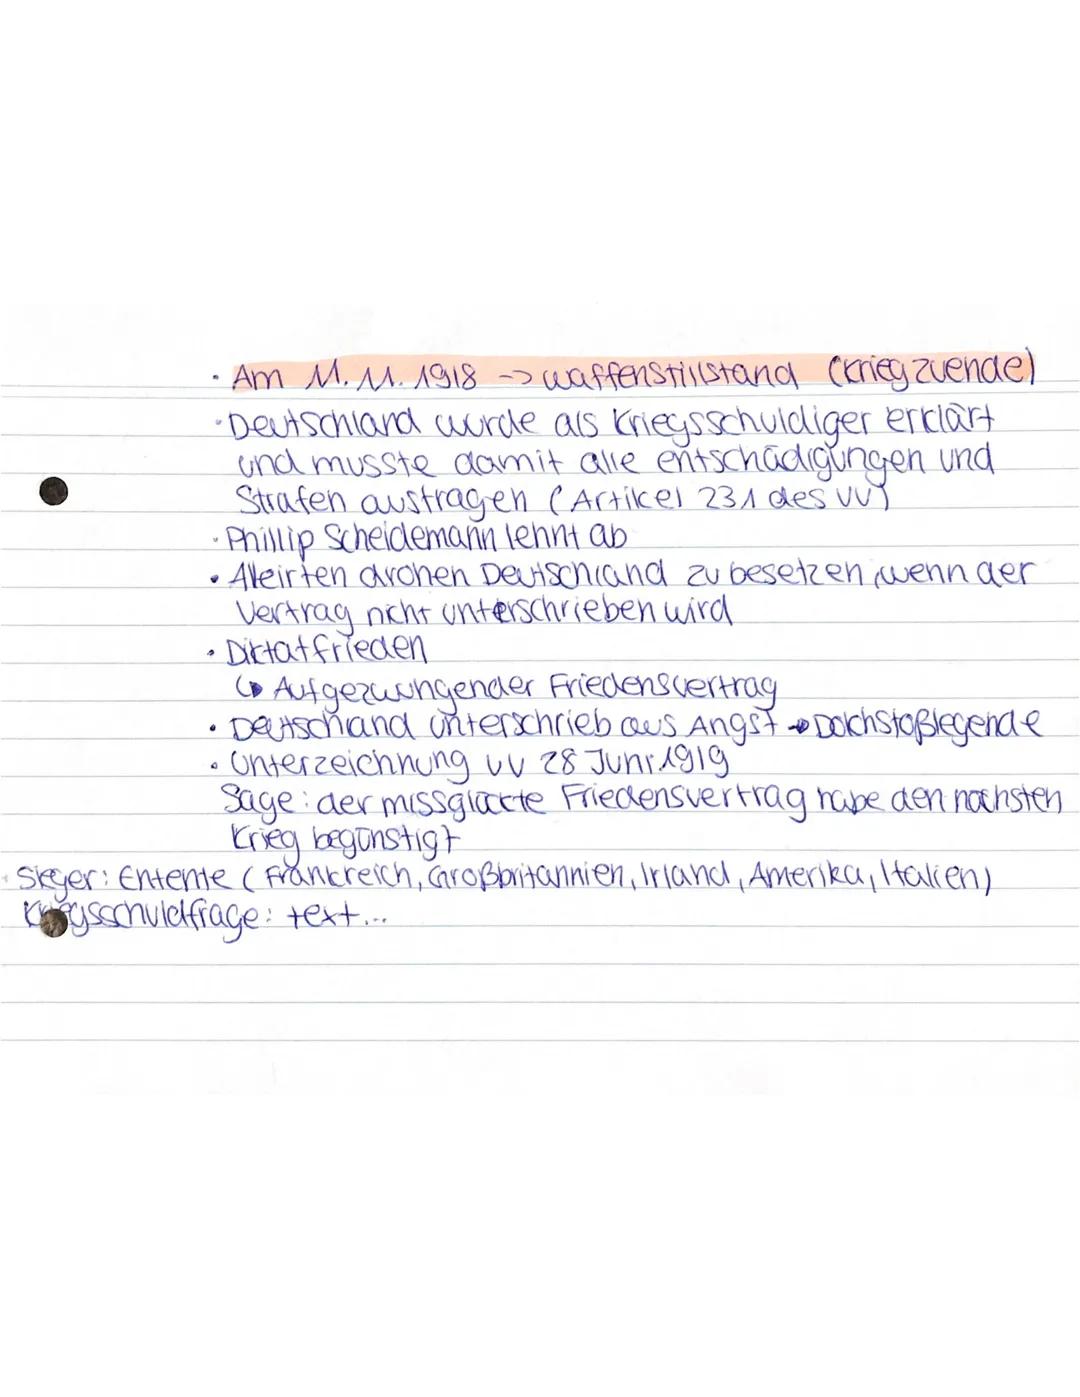 · Am 11.11.1918 -> waffenstillstand (krieg zuende)
· Deutschland wurde als Kriegsschuldiger erklärt
und musste damit alle entschädigungen und
Strafen austragen (Artikel 231 des VV)
· Phillip Scheidemann lehnt ab
· Alleirten drohen Deutschland zu besetzen, wenn der
Vertrag nicht unterschrieben wird
· Diktatfrieden
↳ Aufgezwungender Friedensvertrag
· Deutschland unterschrieb aus Angst → Dolchstoßlegende
· Unterzeichnung VV 28 Juni.1919
Sage: der missglückte Friedensvertrag habe den nächsten
Krieg begünstigt
· Sieger: Entente (Frankreich, Großbritannien, Irland, Amerika, Italien)
Kriegsschuldfrage: text...